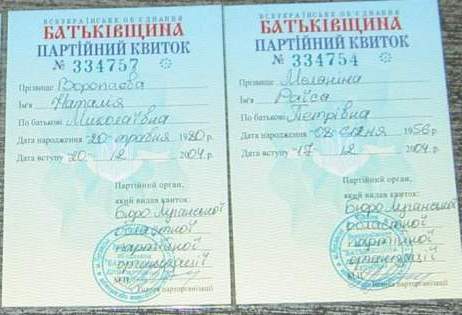 ВСЕУКРАЇНСЬКЕ ОБ'ЄДНАННЯ
БАТЬКІВЩИНА
ПАРТІЙНИЙ КВИТОК
№ 334757
Прізвище Воропаєва
Ім'я Наталія
По батькові Миколаївна
Дата народження 20 травня 1980 р.
Дата вступу 20 12 2004 р.
Партійний орган,
який видав квиток:
Бюро Луганської
обласної
партійної
організації
М.П.
Голова парторганізації
ВСЕУКРАЇНСЬКЕ ОБ'ЄДНАННЯ
БАТЬКІВЩИНА
ПАРТІЙНИЙ КВИТОК
№ 334754
Прізвище Меланіна
Ім'я Раїса
По батькові Петрівна
Дата народження 08 січня 1956 р.
Дата вступу 17 12 2004 р.
Партійний орган,
який видав квиток:
Бюро Луганської
обласної
партійної
організації
М.П.
Голова парторганізації